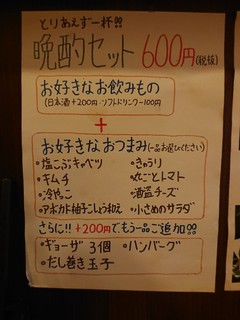 とりあえず一杯!!
晩酌セット 600円(税抜)
お好きなお飲みもの
(日本酒+200円・ソフトドリンク-100円)
+
お好きなおつまみ(一品お選びください)
・塩こぶキャベツ ・きゅうり
・キムチ ・丸ごとトマト
・冷やっこ ・酒盗チーズ
・アボカド柚子こしょう和え ・小さめのサラダ
さらに!! +200円でもう一品ご追加!!
・ギョーザ3個 ・ハンバーグ
・だし巻き玉子